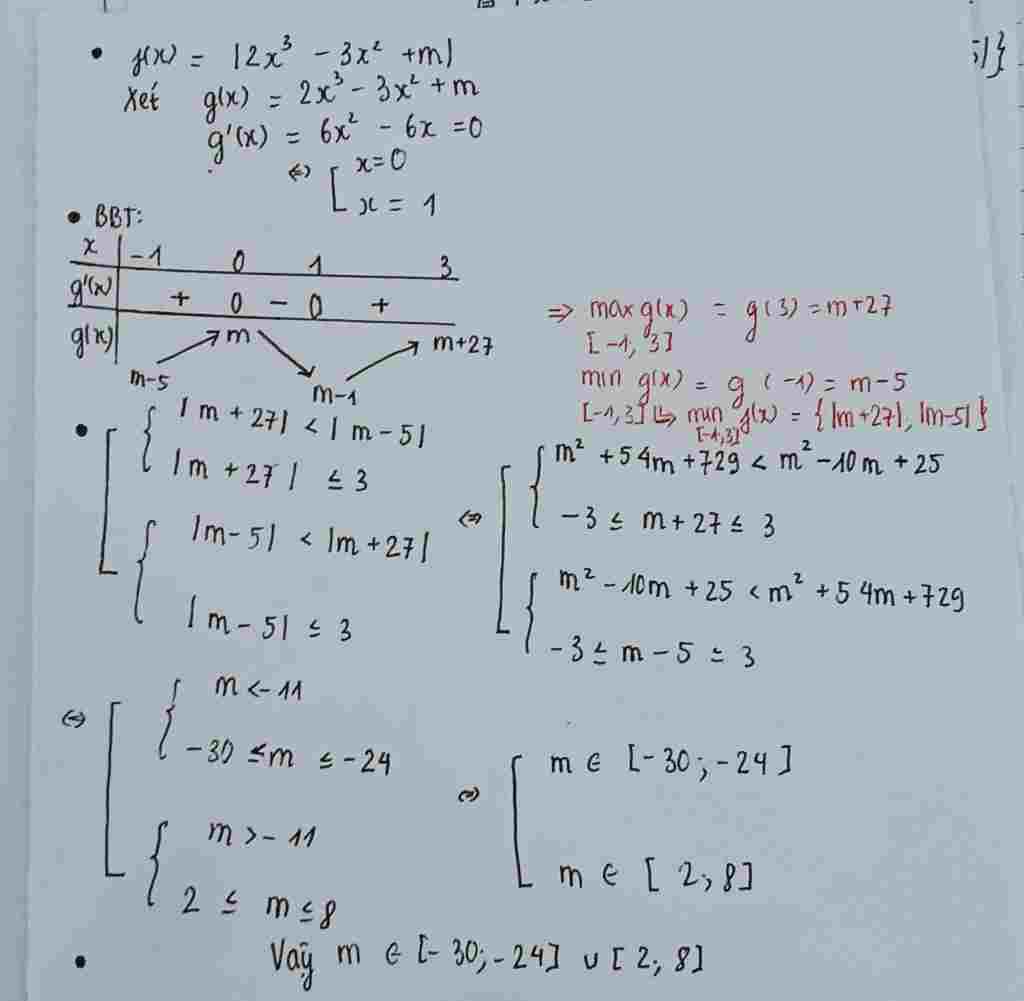 • f(x) = |2x³ - 3x² + m|
;|}
Xét g(x) = 2x³ - 3x² + m
g'(x) = 6x² - 6x = 0
⇔ [ x = 0
x = 1
• BBT:
x | -1 0 1 3
g'(x) | + 0 - 0 +
g(x) | m-5 ↗ m ↘ m-1 ↗ m+27
⇒ max g(x) = g(3) = m+27
[-1, 3]
min g(x) = g(-1) = m-5
[-1,3] ↳ min f(x) = {|m+27|, |m-5|}
[-1,3]
• [ { |m + 27| < |m - 5|
|m + 27| ≤ 3
{ |m - 5| < |m + 27|
|m - 5| ≤ 3
⇔ [ { m² + 54m + 729 < m² - 10m + 25
-3 ≤ m + 27 ≤ 3
{ m² - 10m + 25 < m² + 54m + 729
-3 ≤ m - 5 = 3
⇔ [ { m < -11
-30 ≤ m ≤ -24
{ m > -11
2 ≤ m ≤ 8
⇔ [ m ∈ [-30; -24]
m ∈ [2; 8]
• Vậy m ∈ [-30; -24] ∪ [2; 8]